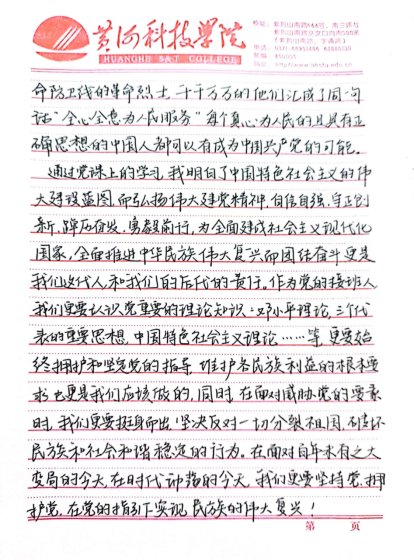 黄河科技学院
HUANGHE S&T COLLEGE
命防卫线的革命烈士,千千万万的他们汇成了同一句
话“全心全意为人民服务”每个真心为人民的且具有正
确思想的中国人都可以有成为中国共产党的可能。
通过党课上的学习,我明白了中国特色社会主义的伟
大建设蓝图,而弘扬伟大建党精神,自信自强,守正创
新,踔厉奋发,勇毅前行,为全面建成社会主义现代化
国家,全面推进中华民族伟大复兴而团结奋斗更是
我们这代人和我们的后代的责任,作为党的接班人
我们更要认识党重要的理论知识:邓小平理论,三个代
表的重要思想,中国特色社会主义理论……等,更要始
终拥护和坚定党的指导,维护各民族利益的根本要
求也更是我们应该做的,同时,在面对威胁党的要素
时,我们更要挺身而出,坚决反对一切分裂祖国,破坏
民族和社会和谐稳定的行为。在面对百年未有之大
变局的今天,在时代动荡的今天,我们更要坚持党,拥
护党,在党的指引下实现民族的伟大复兴!
第 页